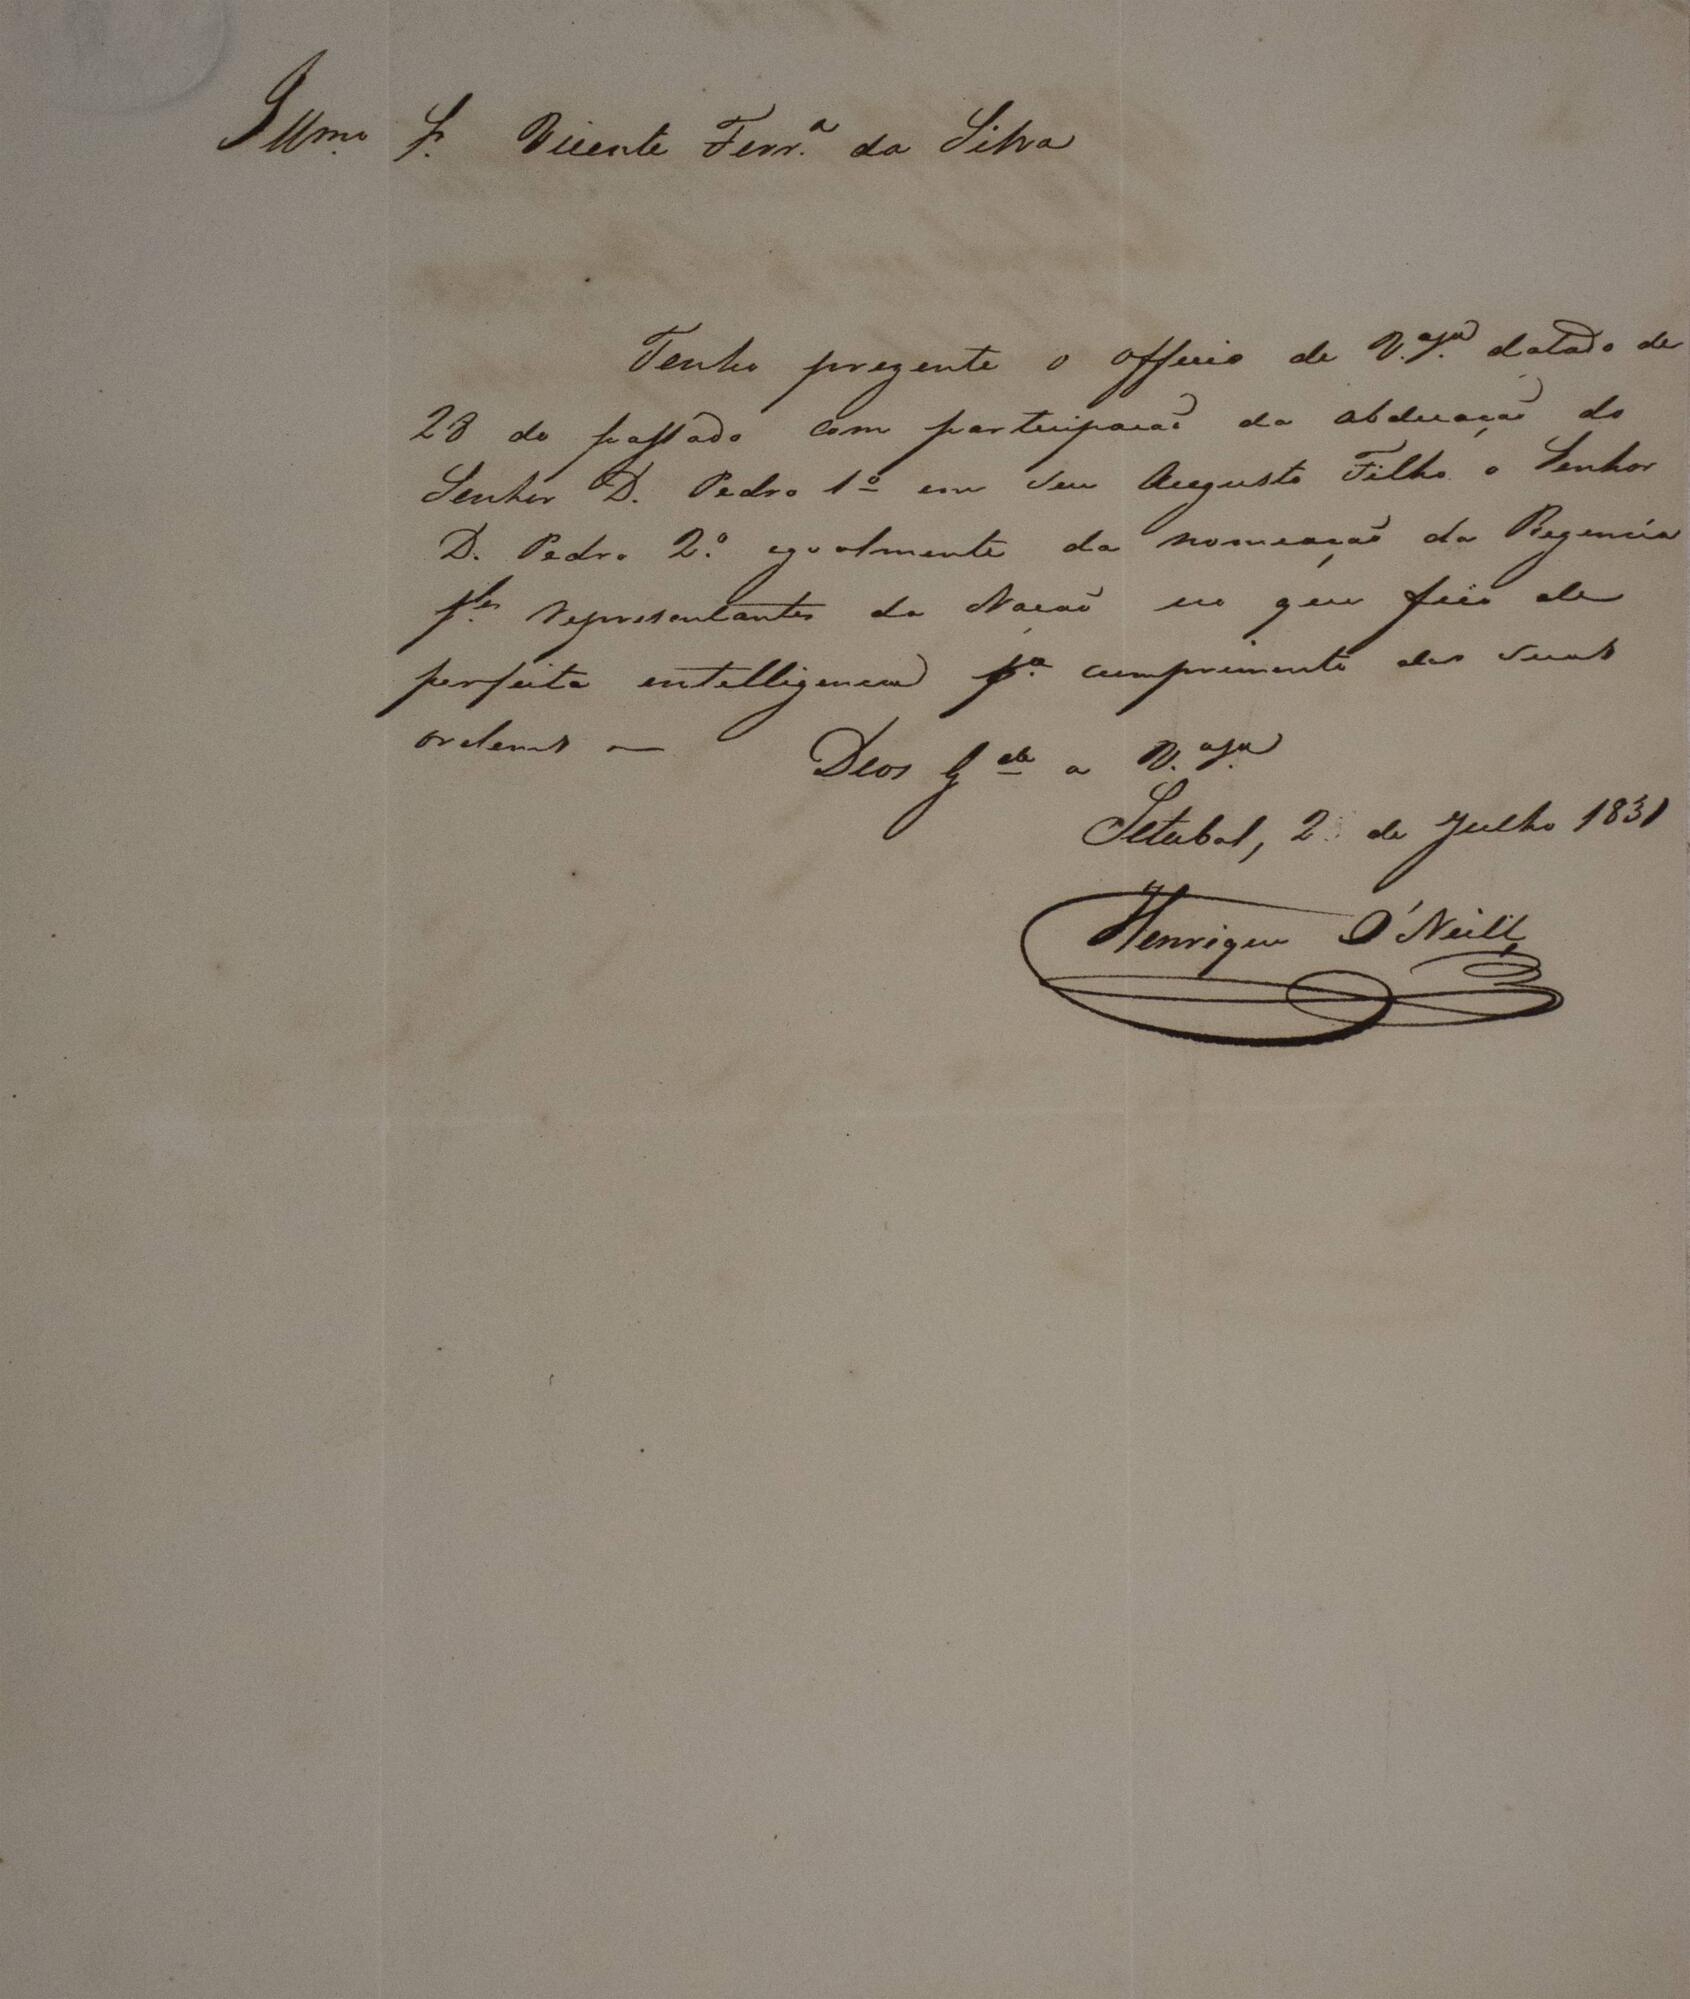 Illmo. Sr. Vicente Ferr.a da Silva
Tenho prezente o officio de V. datado de
28 do passado com participacaõ da abdicaçaõ do
Senhor D. Pedro 1º em seu Augusto Filho o Senhor
D. Pedro 2.º egoalmente da nomeaçaõ da Regencia
p.los representantes da Naçaõ no que fico de
perfeita entelligencia p.a cumprimento das suas
ordens —
Deos G.de a V.
Setubal, 2 de Julho 1831
Henrique O'Neill